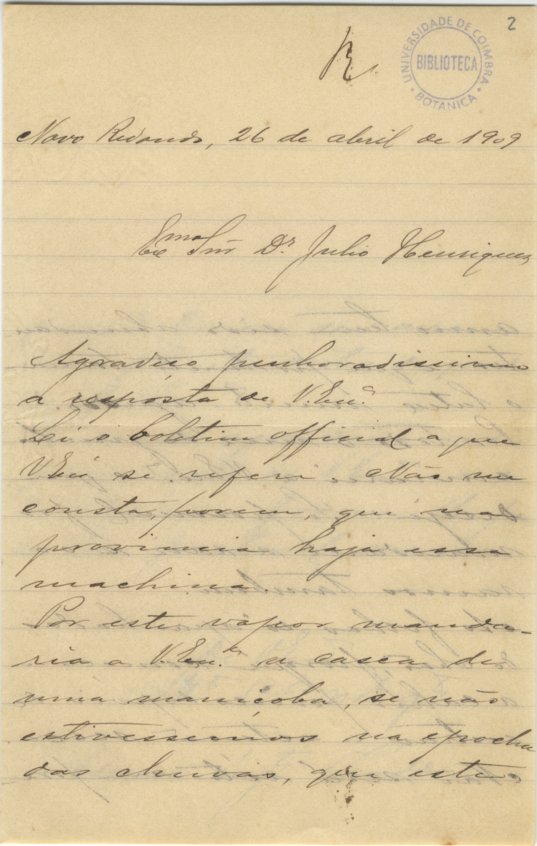 2
R.
UNIVERSIDADE DE COIMBRA
BIBLIOTECA
BOTANICA
Novo Redondo, 26 de abril de 1909
Exmo Snr Dr. Julio Henriques
Agradeço penhoradissimo
a resposta de V. Exa.
Li o boletim official a que
V. Exa se refere. Não me
consta, porem, que na
provincia haja essa
machina.
Por este vapor manda-
ria a V. Exa. a casca de
uma maniçoba, se não
estivessemos na epocha
das chuvas, que este